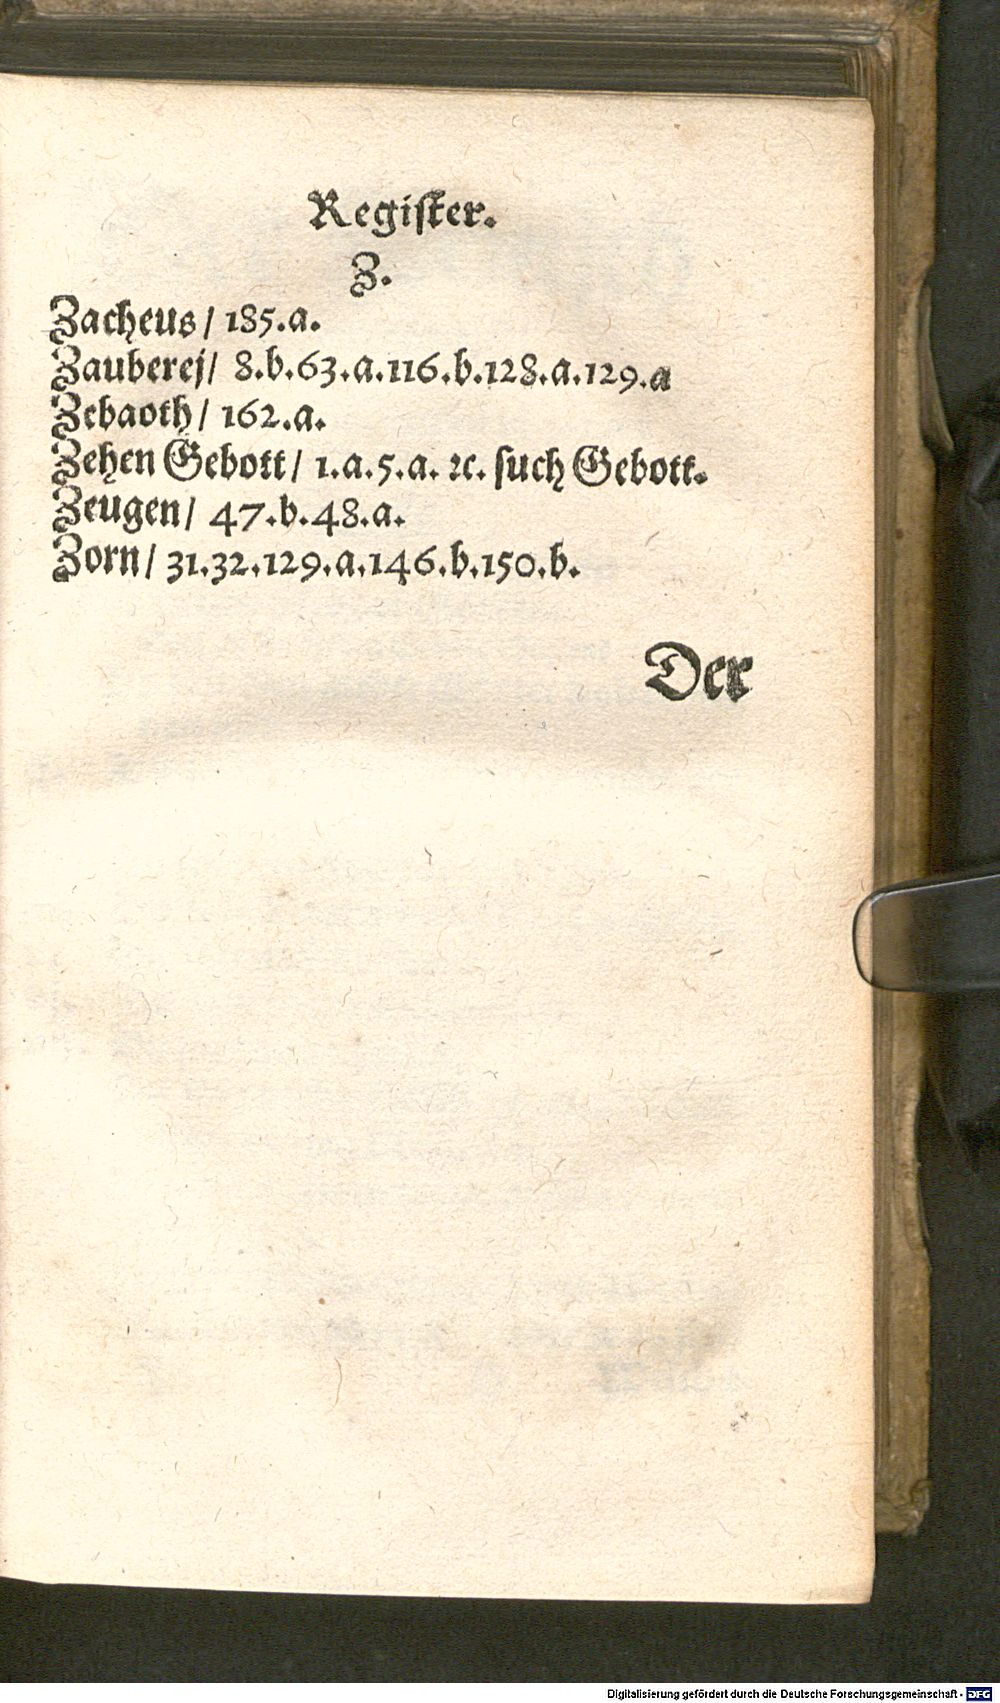 Regiſter.
Z.
Zacheus / 185.a.
Zauberej / 8.b.63.a.116.b.128.a.129.a
Zebaoth / 162.a.
Zehen Gebott / 1.a.5.a. ꝛc. ſuch Gebott.
Zeugen / 47.b.48.a.
Zorn / 31.32.129.a.146.b.150.b.
Der
Digitalisierung gefördert durch die Deutsche Forschungsgemeinschaft - DFG